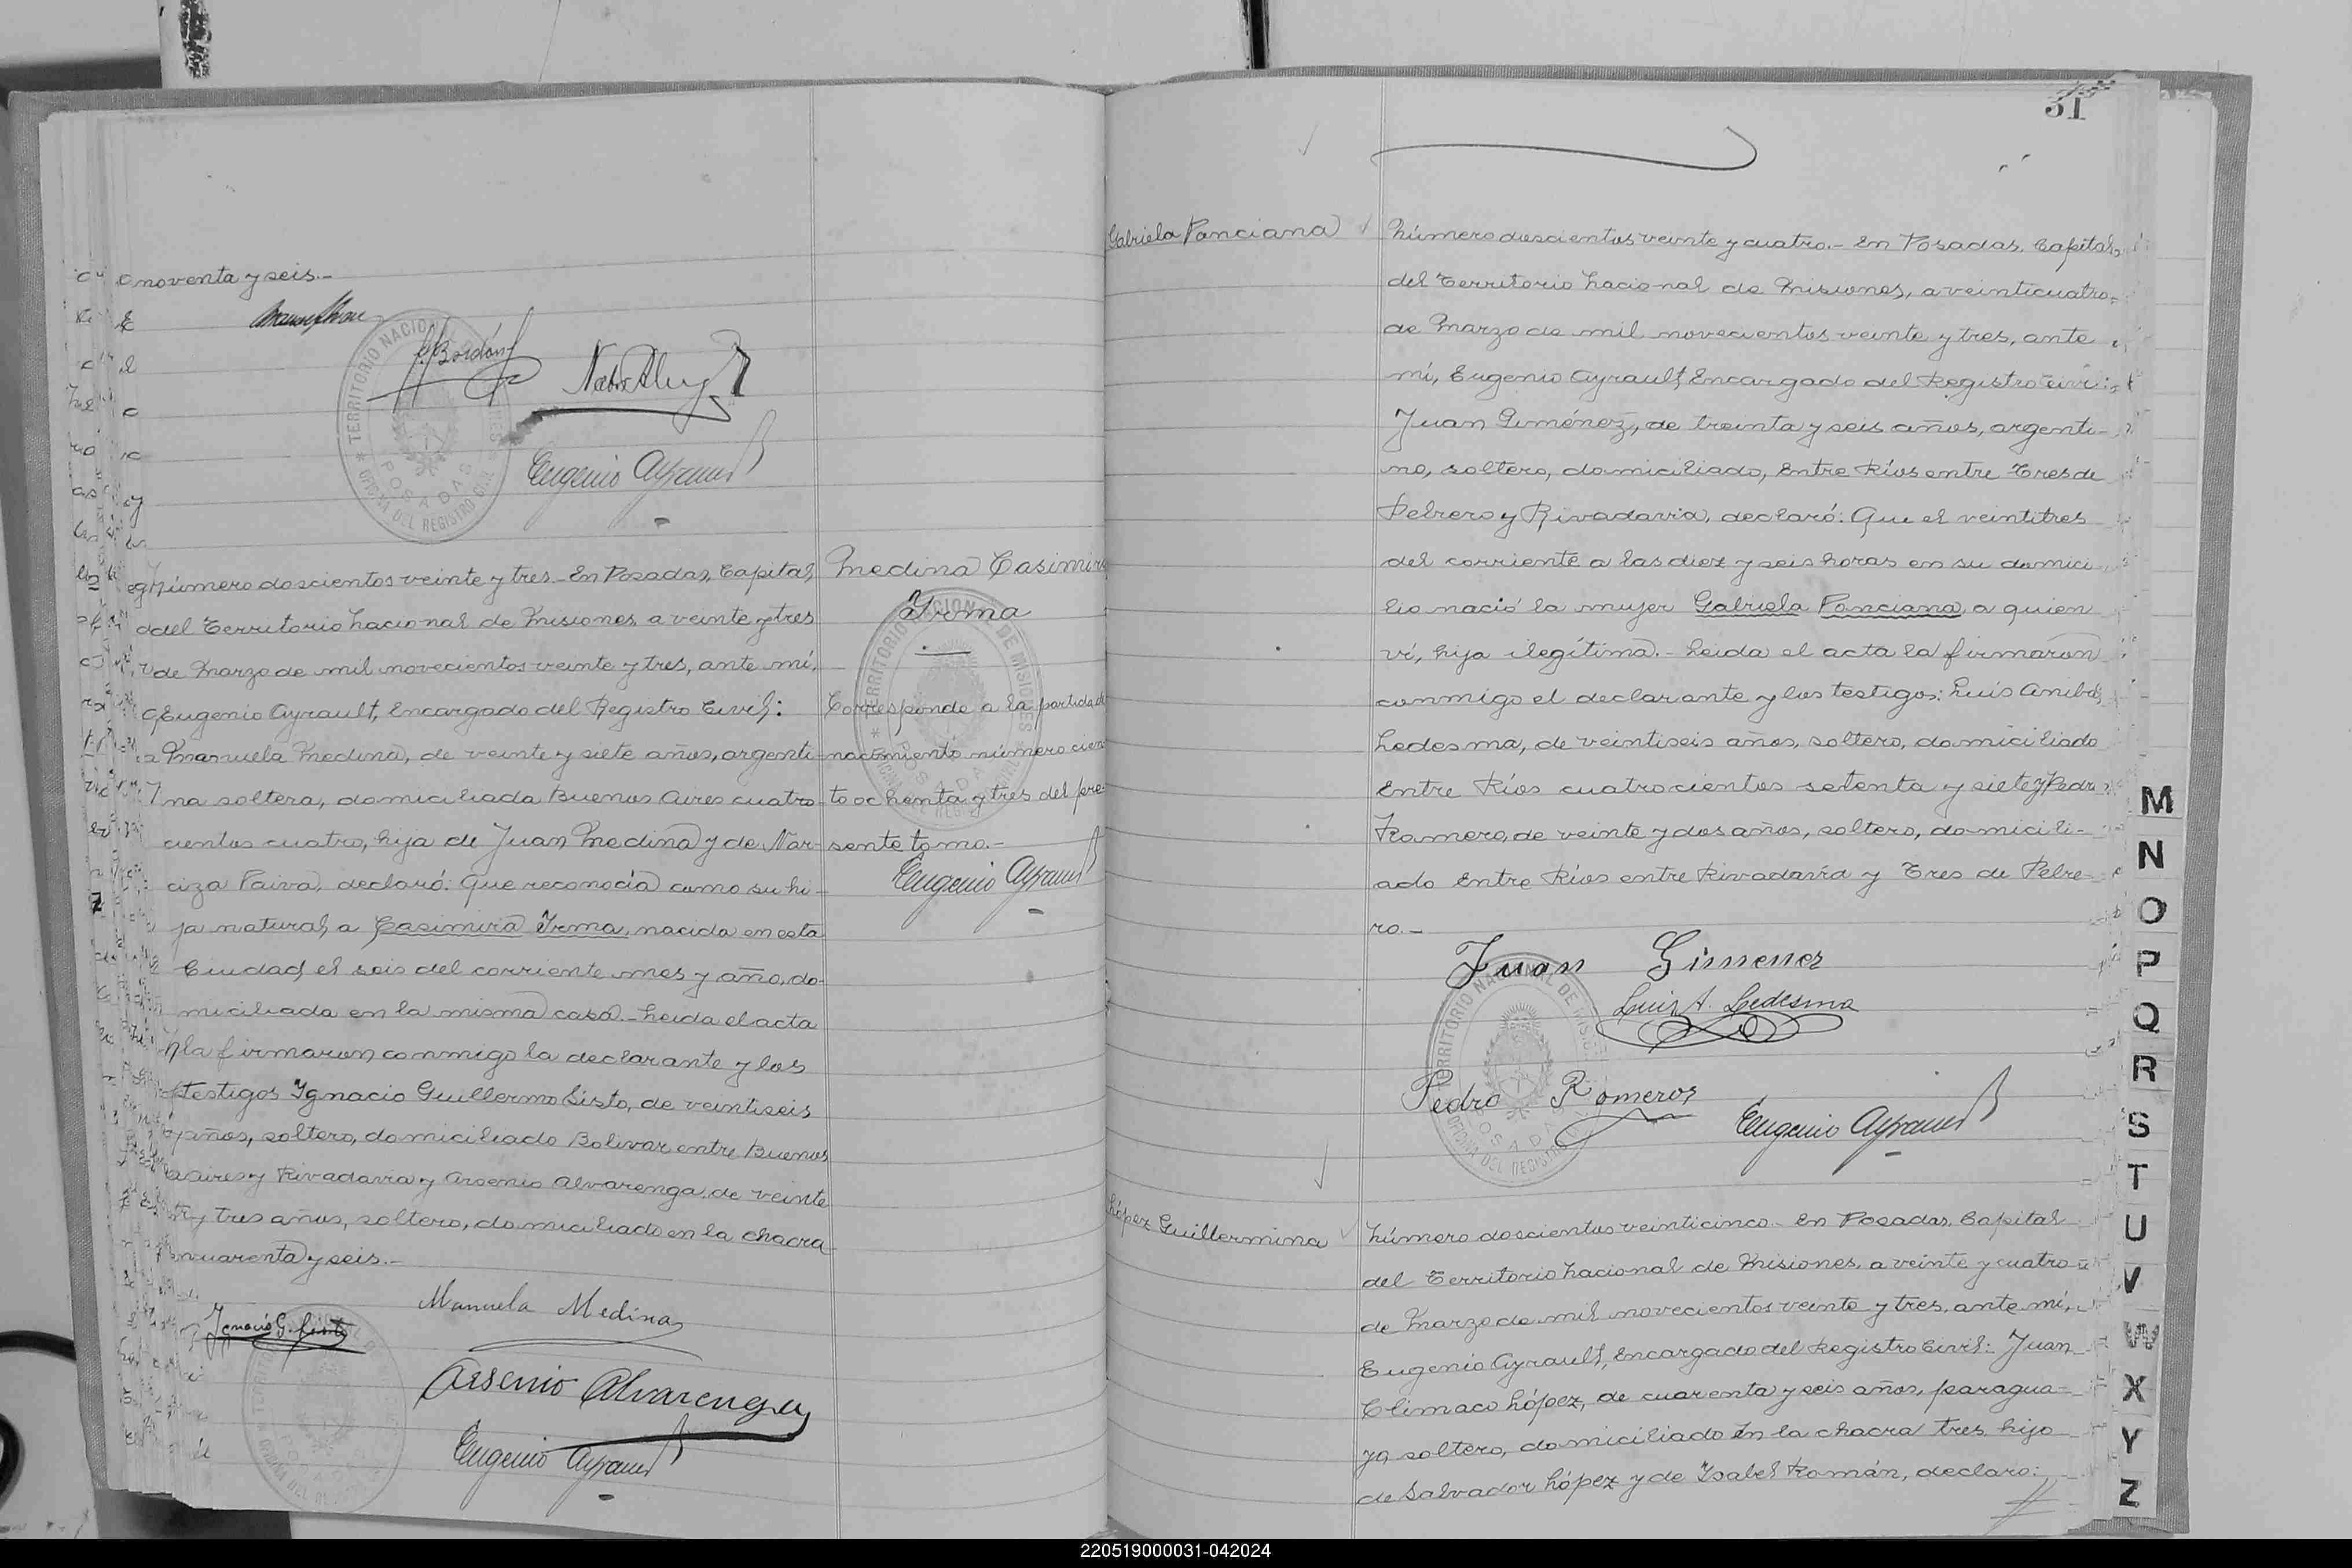 noventa y seis.-
P. Bordón
Eugenio Ayrault
TERRITORIO NACIONAL DE MISIONES
OFICINA DEL REGISTRO CIVIL
POSADAS
Número doscientos veinte y tres.- En Posadas, Capital
del Territorio Nacional de Misiones a veinte y tres
de Marzo de mil novecientos veinte y tres, ante mí,
Eugenio Ayrault, Encargado del Registro Civil:
Manuela Medina, de veinte y siete años, argenti-
na soltera, domiciliada Buenos Aires cuatro-
cientos cuatro, hija de Juan Medina y de Nar-
ciza Paiva, declaró: Que reconocía como su hi-
ja natural a Casimira Irma, nacida en esta
Ciudad el seis del corriente mes y año, do-
miciliada en la misma casa.- Leida el acta
la firmaron conmigo la declarante y los
testigos Ignacio Guillermo Sisto, de veintiseis
años, soltero, domiciliado Bolivar entre Buenos
Aires y Rivadavia y Arsenio Alvarenga, de veinte
y tres años, soltero, domiciliado en la chacra
cuarenta y seis.-
Manuela Medina
Ignacio G. Sisto
Arsenio Alvarenga
Eugenio Ayrault
Medina Casimira
Irma
Corresponde a la partida de
nacimiento número cien-
to ochenta y tres del pre-
sente tomo.-
Eugenio Ayrault
31
Gabriela Ponciana
Número doscientos veinte y cuatro.- En Posadas, Capital
del Territorio Nacional de Misiones, a veinticuatro
de Marzo de mil novecientos veinte y tres, ante
mí, Eugenio Ayrault, Encargado del Registro Civil:
Juan Giménez, de treinta y seis años, argenti-
no, soltero, domiciliado, Entre Ríos entre Tres de
Febrero y Rivadavia, declaró: Que el veintitres
del corriente a las diez y seis horas en su domici-
lio nació la mujer Gabriela Ponciana, a quien
ví, hija ilegítima.- Leida el acta la firmaron
conmigo el declarante y los testigos: Luis Anibal
Ledesma, de veintiseis años, soltero, domiciliado
Entre Ríos cuatrocientos setenta y siete y Pedro
Romero, de veinte y dos años, soltero, domicili-
ado Entre Ríos entre Rivadavia y Tres de Febre-
ro.-
Juan Gimenez
Luis A. Ledesma
Pedro Romeros
Eugenio Ayrault
López Guillermina
Número doscientos veinticinco.- En Posadas, Capital
del Territorio Nacional de Misiones, a veinte y cuatro
de Marzo de mil novecientos veinte y tres, ante mí,
Eugenio Ayrault, Encargado del Registro Civil: Juan
Climaco López, de cuarenta y seis años, paragua-
yo, soltero, domiciliado en la chacra tres, hijo
de Salvador López y de Isabel Román, declaro:
M
N
O
P
Q
R
S
T
U
V
W
X
Y
Z
220519000031-042024